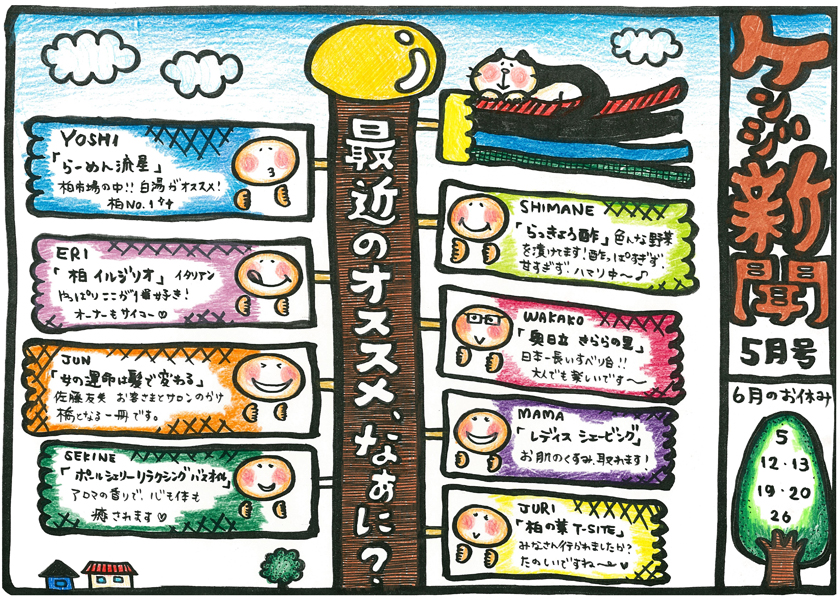 ケンジ新聞
5月号
6月のお休み
5
12・13
19・20
26
最近のオススメ、なぁに?
YOSHI
「らーめん流星」
柏市場の中!! 白湯がオススメ!
柏No.1です
ERI
「柏 イルジリオ」 イタリアン
やっぱりここが1番好き!
オーナーもサイコー♡
JUN
「女の運命は髪で変わる」
佐藤友美 お客さまとサロンのかけ
橋となる一冊です。
SEKINE
「ポールシェリーリラクシングバスオイル」
アロマの香りで、心も体も
癒されます♡
SHIMANE
「らっきょう酢」 色んな野菜
を漬けてます!酢っぱすぎず
甘すぎず、ハマリ中〜♪
WAKAKO
「奥日立 きららの里」
日本一長いすべり台!!
大人でも楽しいです〜
MAMA
「レディス シェービング」
お肌のくすみ取れます!
JURI
「柏の葉 T-SITE」
みなさん行かれましたか?
たのしいですね〜♥